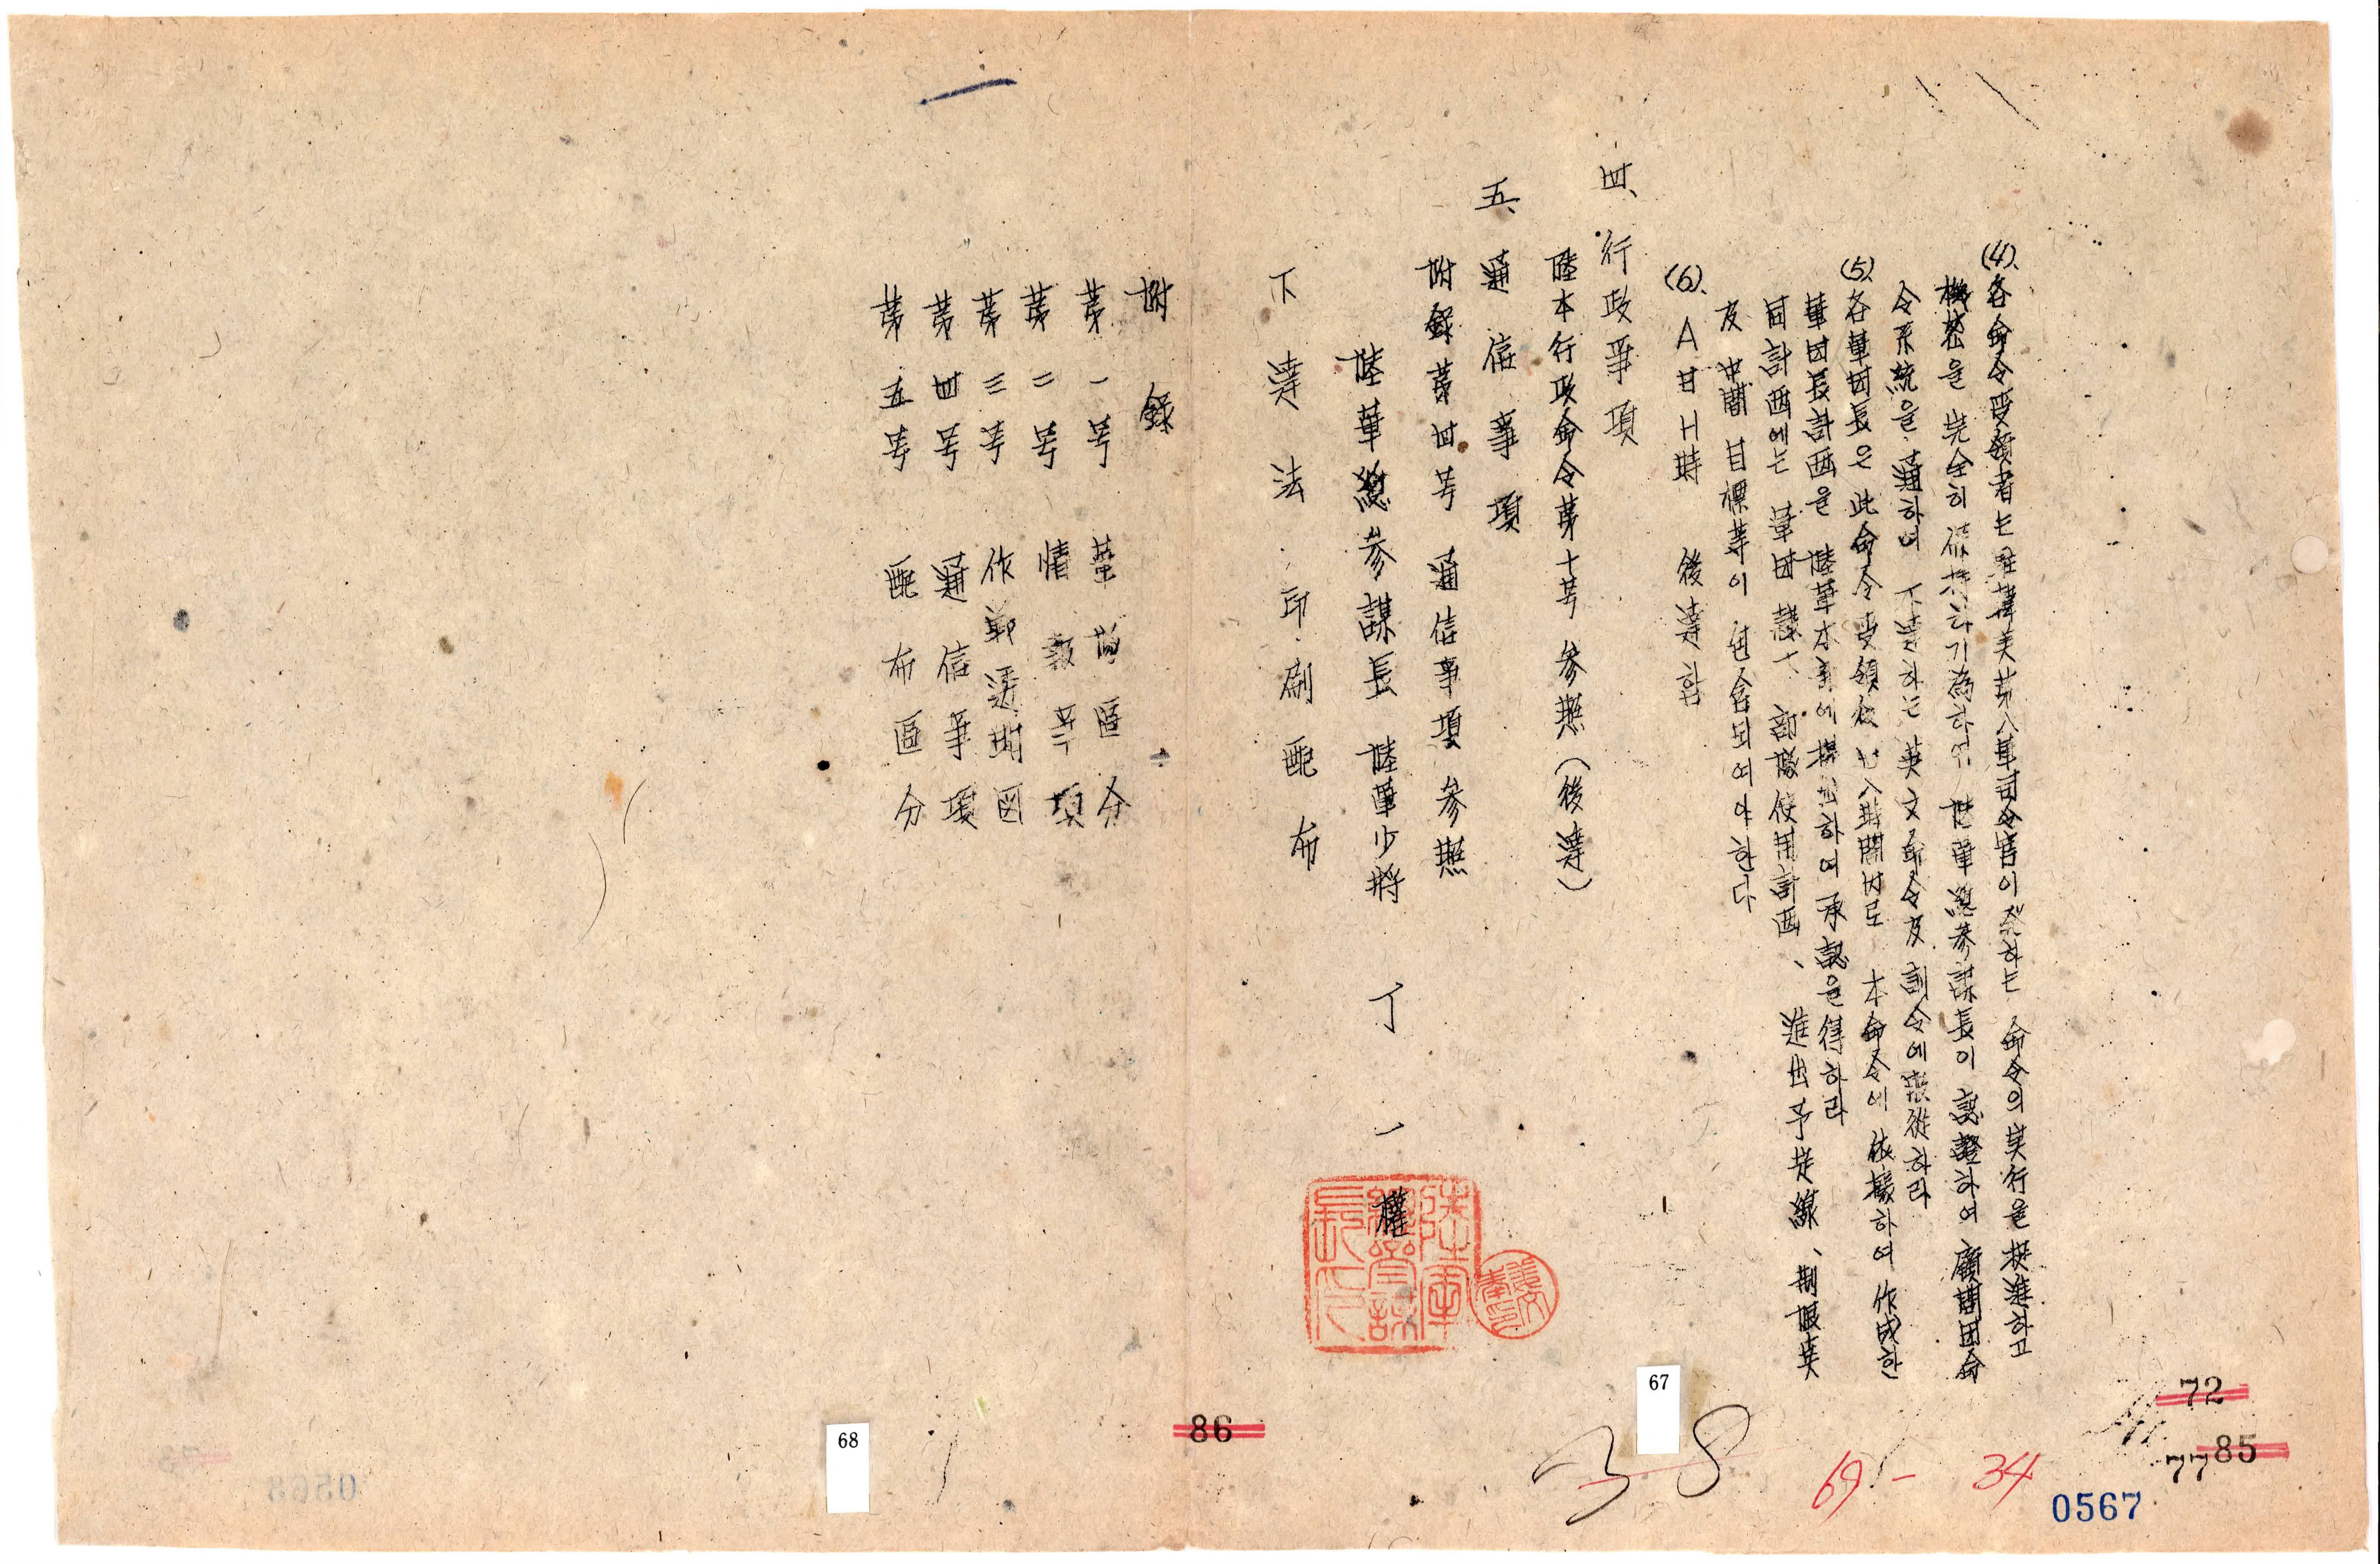 (4). 各命令受領者는 駐韓美第八軍司令官이 發하는 命令의 実行을 促進하고
機密을 完全히 維持하기 為하여 陸軍總參謀長이 認證하여 顧問団命
令系統을 通하여 下達하는 英文命令及 訓令에 服從하라
(5). 各軍団長은 此命令受領後 十八時間内로 本命令에 依據하여 作成한
軍団長計画을 陸軍本部에 提出하여 承認을 得하라
同計画에는 軍団 隸下 部隊使用計画、進出予定線、制限点
及 中間目標等이 包含되여야한다
(6). A日H時 後達함
四、行政事項
陸本行政命令第十号 參照(後達)
五、通信事項
附錄第四号 通信事項參照
陸軍總參謀長 陸軍少將 丁一權
陸軍總參謀長印
下達法 印刷配布
附錄
第一号 軍隊區分
第二号 情報事項
第三号 作戰透明図
第四号 通信事項
第五号 配布區分
67
68
86
72
85
77
38
69 - 34
0567
0568